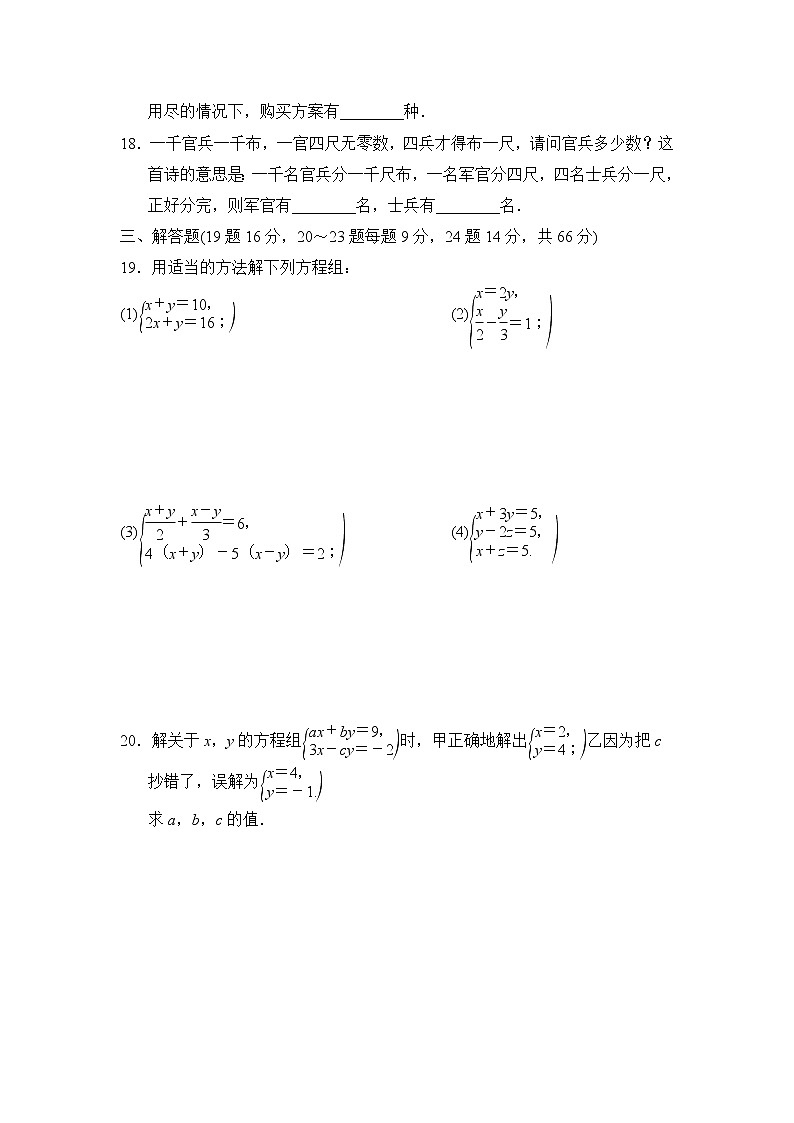 用尽的情况下，购买方案有________种．
18．一千官兵一千布，一官四尺无零数，四兵才得布一尺，请问官兵多少数？这
首诗的意思是：一千名官兵分一千尺布，一名军官分四尺，四名士兵分一尺，
正好分完，则军官有________名，士兵有________名．
三、解答题(19题16分，20～23题每题9分，24题14分，共66分)
19．用适当的方法解下列方程组：
(1){x＋y＝10，
2x＋y＝16；)
(2){x＝2y，
x/2－y/3＝1；)
(3){(x＋y)/2＋(x－y)/3＝6，
4（x＋y）－5（x－y）＝2；)
(4){x＋3y＝5，
y－2z＝5，
x＋z＝5.)
20．解关于x，y的方程组{ax＋by＝9，
3x－cy＝－2)时，甲正确地解出{x＝2，
y＝4；)乙因为把c
抄错了，误解为{x＝4，
y＝－1.)
求a，b，c的值．